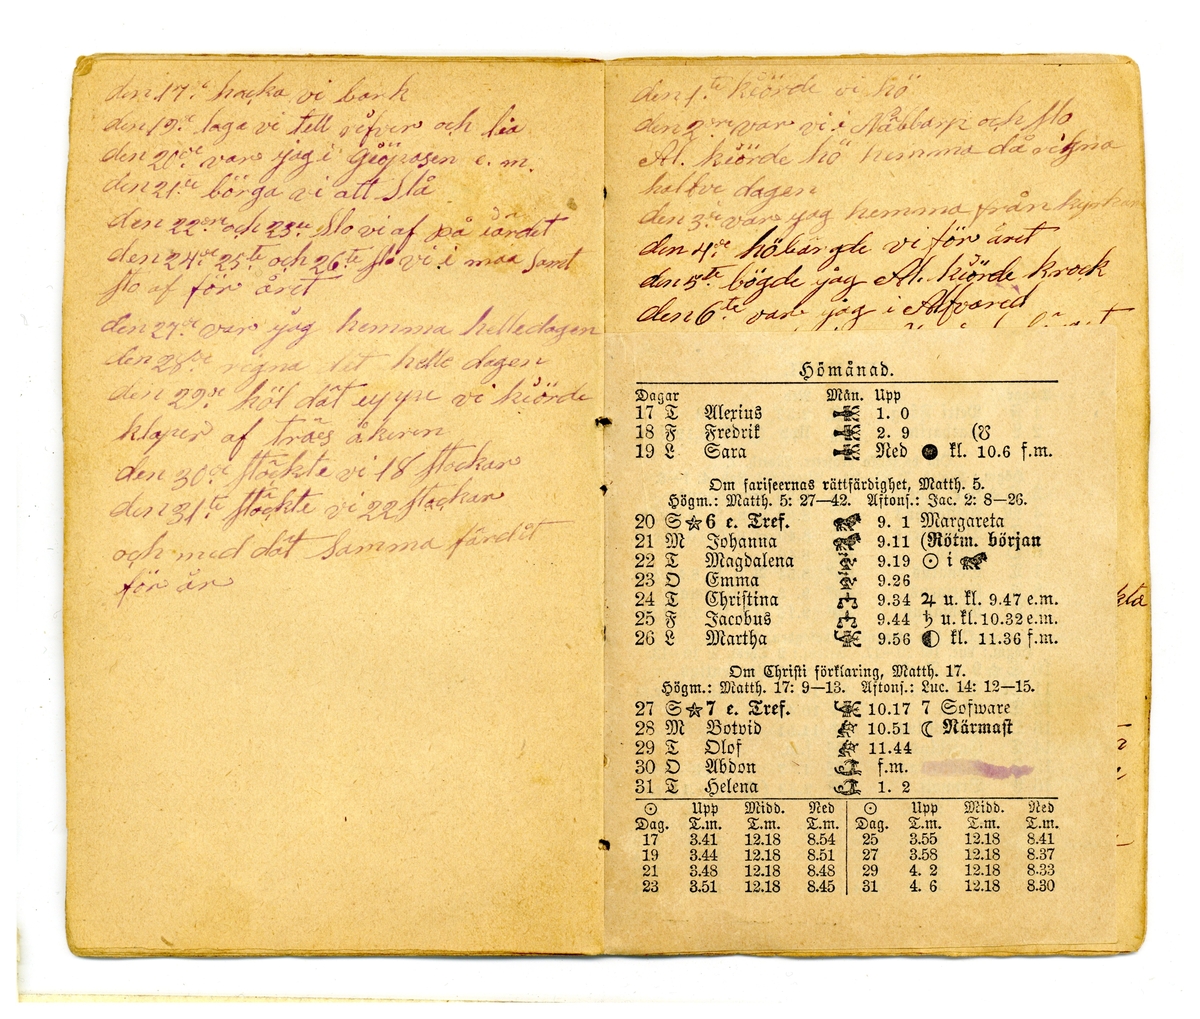 den 17de hacka vi bark
den 19de laga vi tell räfver och lia
den 20de var jag i e. m.
den 21de börga vi att slå
den 22dre och 23de slo vi af på iärdet
den 24de 25te och 26te slo vi i maa samt
slo af för året
den 27de var jag hemma helledagen
den 28de regna det helle dagen
den 29de höl dät uppe vi kiörde
klaper af träes åkeren
den 30de stöckte vi 18 stockar
den 31te stöckte vi 22 stockar
och med dät samma färdåt
för år
den 1te kiörde vi hö
den 2dre var vi i Nåbbarp och slo
Al. kiörde hö hemma då regna
halfve dagen
den 3de var jag hemma från kyrkan
den 4de höbärgde vi för året
den 5te bögde jag Al. kiörde krock
den 6te var jag i Alfvared
Hömånad.
Dagar Mån. Upp
17 T Alexius 1. 0
18 F Fredrik 2. 9 (☋
19 L Sara Ned ● kl. 10.6 f.m.
Om fariseernas rättfärdighet, Matth. 5.
Högm.: Matth. 5: 27—42. Aftons.: Jac. 2: 8—26.
20 S ☆ 6 e. Tref. 9. 1 Margareta
21 M Johanna 9.11 (Rötm. början
22 T Magdalena 9.19 ☉ i ♌
23 O Emma 9.26
24 T Christina 9.34 ♃ u. kl. 9.47 e.m.
25 F Jacobus 9.44 ♄ u. kl. 10.32 e.m.
26 L Martha 9.56 ◐ kl. 11.36 f.m.
Om Christi förklaring, Matth. 17.
Högm.: Matth. 17: 9—13. Aftons.: Luc. 14: 12—15.
27 S ☆ 7 e. Tref. 10.17 7 Sofware
28 M Botvid 10.51 ☾ Närmast
29 T Olof 11.44
30 O Abdon f.m.
31 T Helena 1. 2
☉ Upp Midd. Ned ☉ Upp Midd. Ned
Dag. T.m. T.m. T.m. Dag. T.m. T.m. T.m.
17 3.41 12.18 8.54 25 3.55 12.18 8.41
19 3.44 12.18 8.51 27 3.58 12.18 8.37
21 3.48 12.18 8.48 29 4. 2 12.18 8.33
23 3.51 12.18 8.45 31 4. 6 12.18 8.30